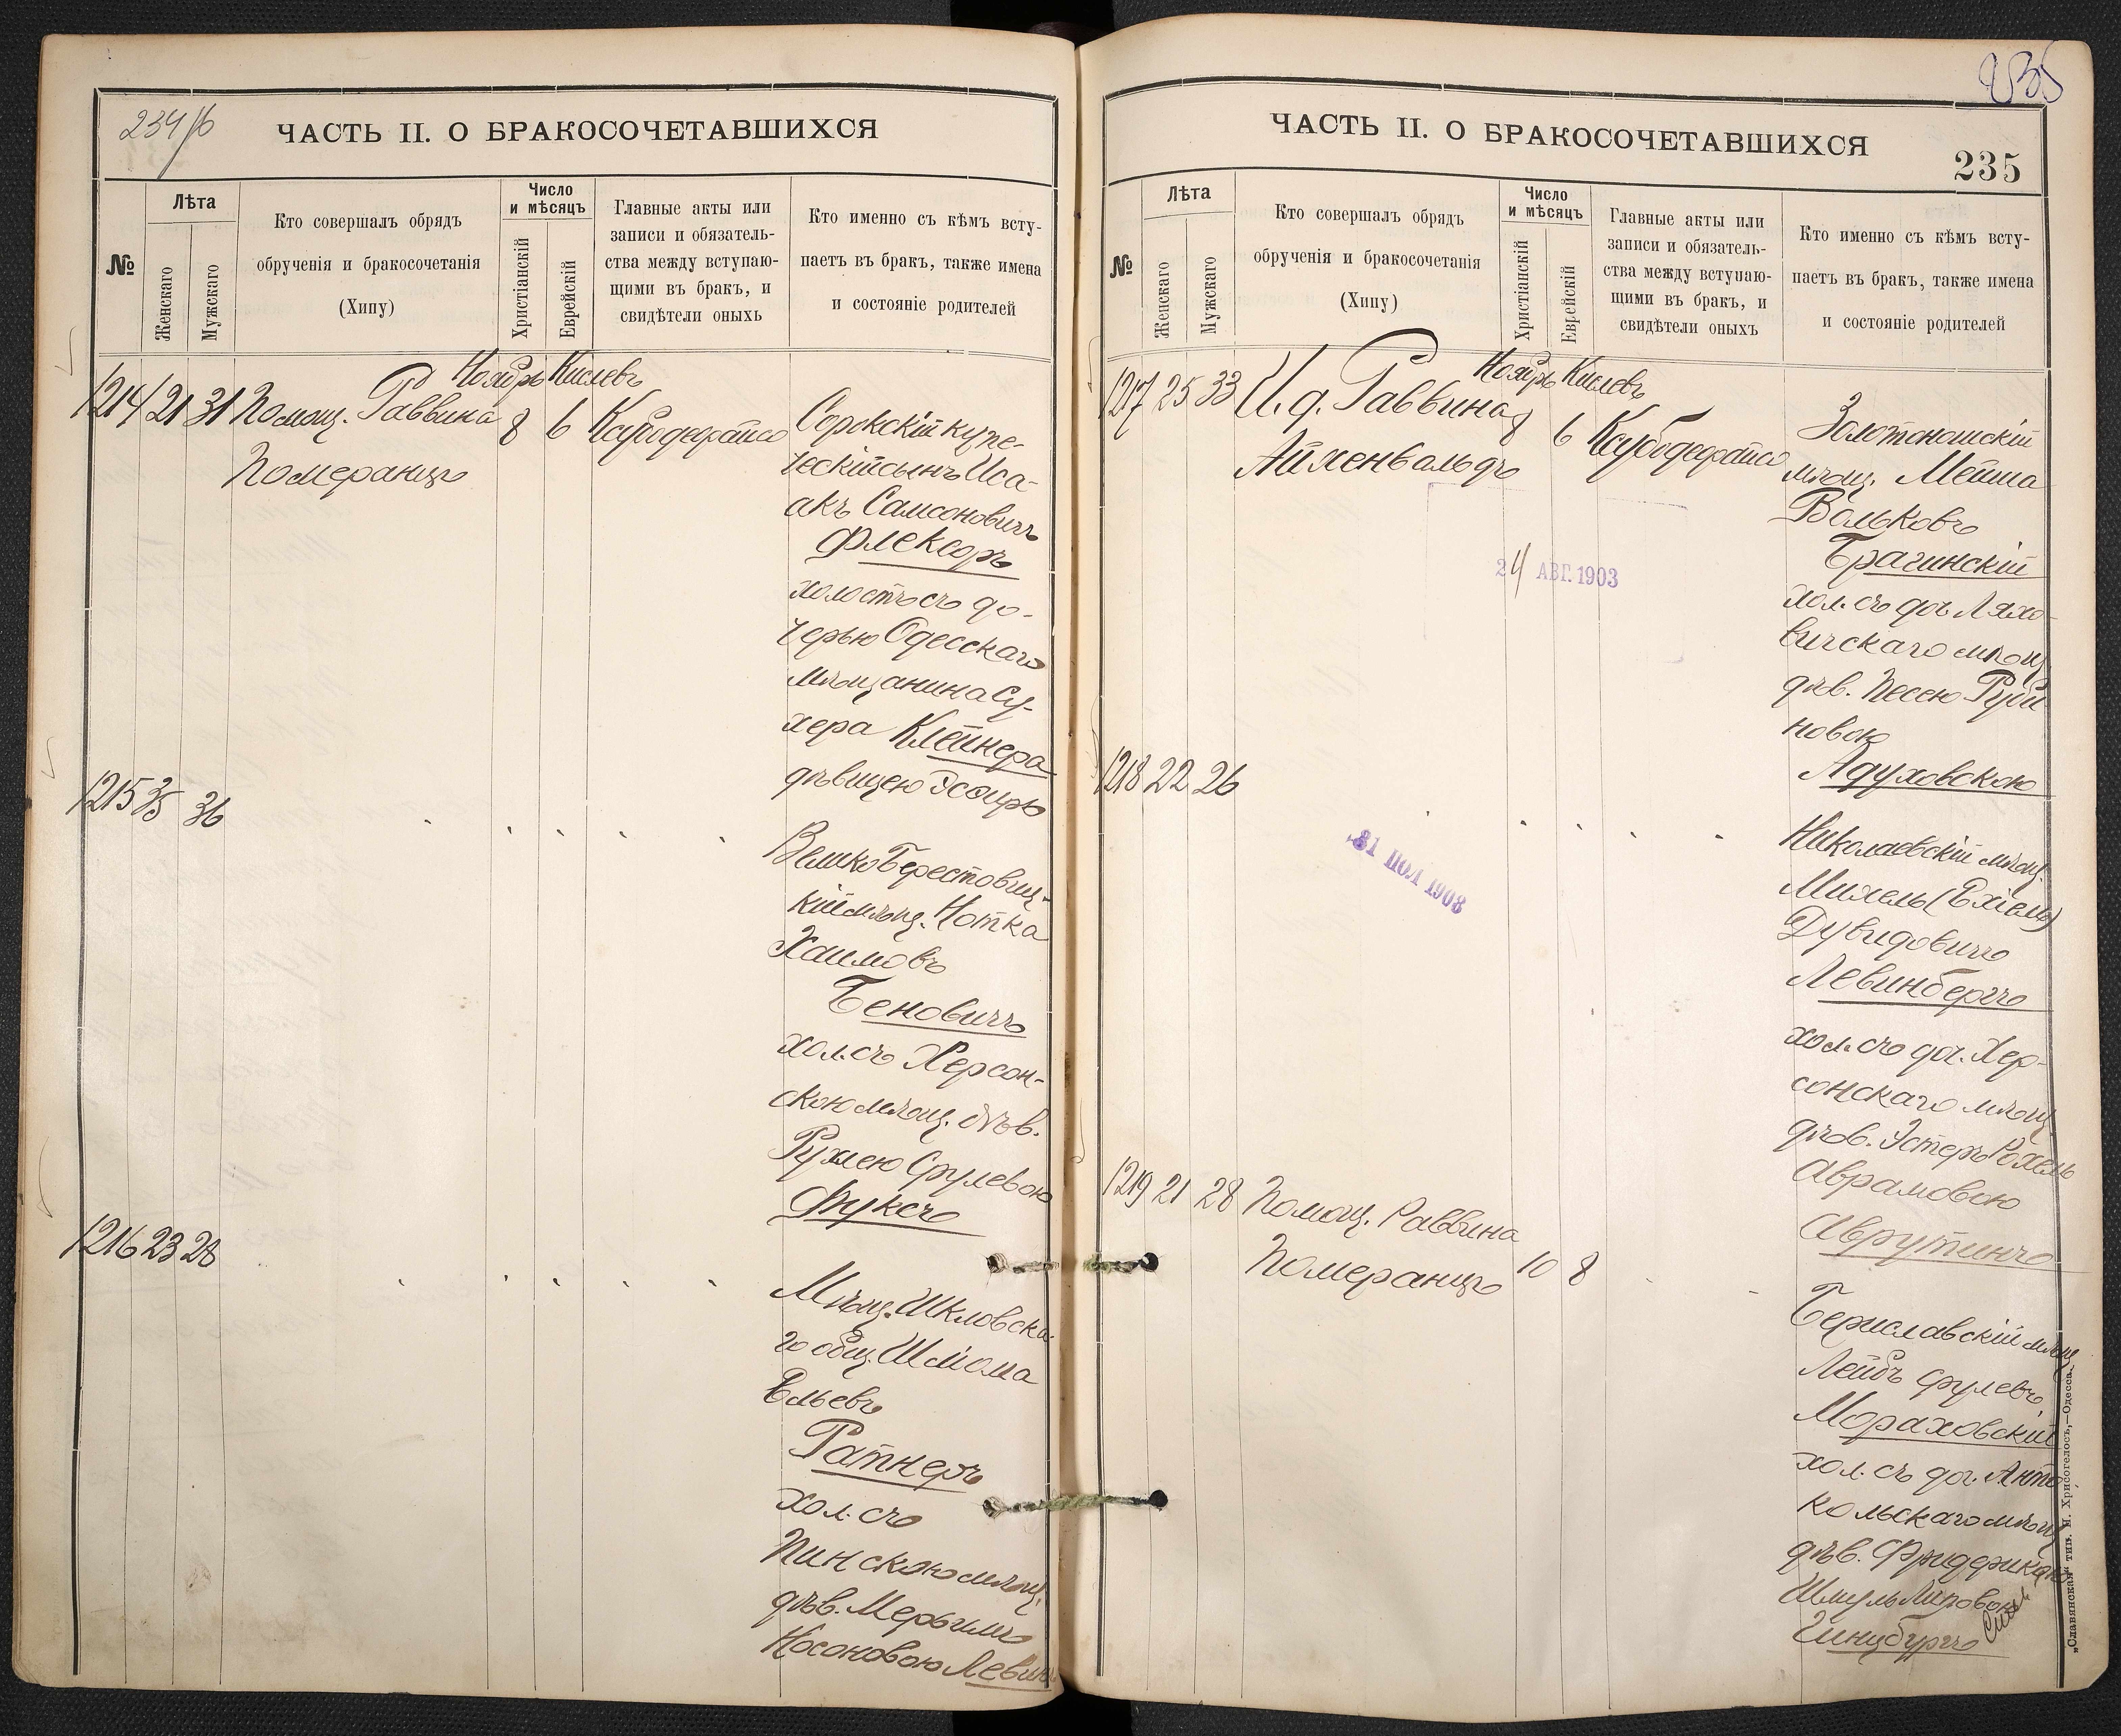 234/б
ЧАСТЬ II. О БРАКОСОЧЕТАВШИХСЯ
№
Лѣта
Женскаго
Мужскаго
Кто совершалъ обрядъ
обрученія и бракосочетанія
(Хипу)
Число
и мѣсяцъ
Христіанскій
Еврейскій
Главные акты или
записи и обязатель-
ства между вступаю-
щими въ бракъ, и
свидѣтели оныхъ
Кто именно съ кѣмъ всту-
паетъ въ бракъ, также имена
и состояніе родителей
Ноябрь Кислевъ
1214 21 31 Помощ. Раввина 8 6
Померанцъ
Сорокскій купе-
ческій сынъ Иса-
акъ Самсоновичъ
Флексоръ
холостъ съ до-
черью Одесскаго
мѣщанина Су-
хера Клейнера
дѣвицею Эсѳирь
1215 35 36
Велико Берестовиц-
кій мѣщ. Нотка
Хаимовъ
Беновичъ
хол. съ Херсон-
скою мѣщ. дѣв.
Рухлею Срулевою
Фуксъ
1216 23 28
Мѣщ. Шкловска-
го общ. Шлома
Ельевъ
Ратнеръ
хол. съ
Пинскою мѣщ.
дѣв. Мерычмъ
Носоновою Левинъ
235
ЧАСТЬ II. О БРАКОСОЧЕТАВШИХСЯ
235
№
Лѣта
Женскаго
Мужскаго
Кто совершалъ обрядъ
обрученія и бракосочетанія
(Хипу)
Число
и мѣсяцъ
Христіанскій
Еврейскій
Главные акты или
записи и обязатель-
ства между вступаю-
щими въ бракъ, и
свидѣтели оныхъ
Кто именно съ кѣмъ всту-
паетъ въ бракъ, также имена
и состояніе родителей
Ноябрь Кислевъ
1217 25 33 И. д. Раввина 8 6
Айхенвальдъ
Золотоношскій
мѣщ. Мейша
Вольковъ
Брагинскій
хол. съ доч. Ляхо-
вичскаго мѣщ.
дѣв. Песею Руби-
новою
Адуховскою
24 АВГ. 1903
1218 22 26
31 ІЮЛ 1908
Николаевскій мѣщ.
Михель (Ехіель)
Дувидовичъ
Левинбергъ
хол. съ доч. Хер-
сонскаго мѣщ.
дѣв. Эстеръ Рохель
Аврамовою
Аврутинъ
1219 21 28 Помощ. Раввина
Померанцъ 10 8
Бериславскій мѣщ.
Лейбъ Срулевъ
Мораховскій
хол. съ доч. Анто-
кольскаго мѣщ.
дѣв. Фридерикою
Шмуль Липовою
Гинцбургъ
„Славянская“ тип. Н. Хрисогелосъ,—Одесса.